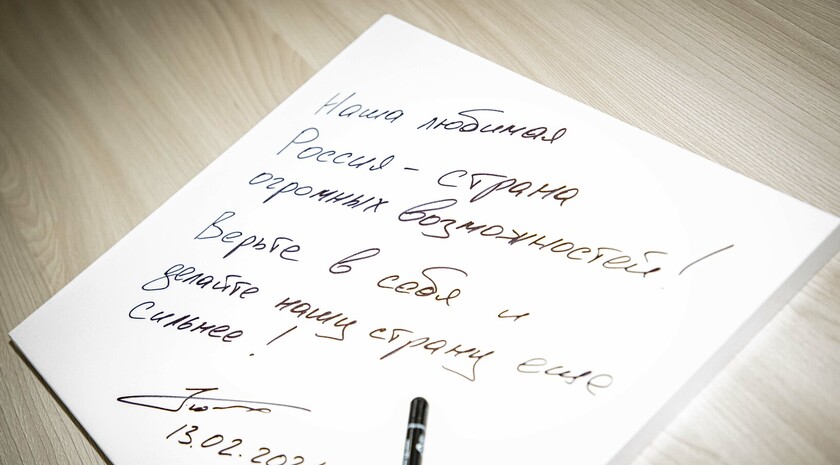 Наша любимая
Россия - страна
огромных возможностей!
Верьте в себя и
делайте нашу страну еще
сильнее!
13.02.202